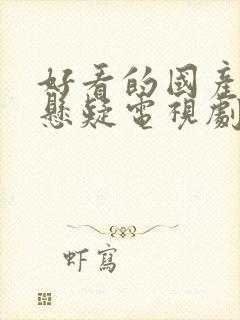 好看的國產
懸疑電視劇
虾寫